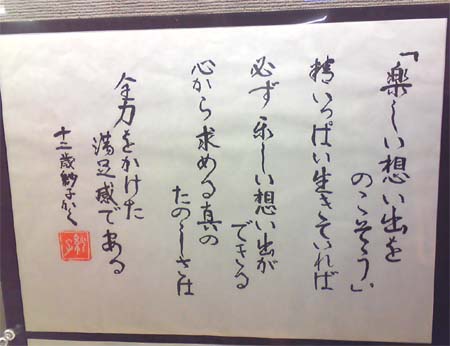 「楽しい想い出を
のこそう」
精いっぱい生きていれば
必ず楽しい想い出が
できる
心から求める真の
たのしさは
全力をかけた
満足感である
十二歳紗子かく